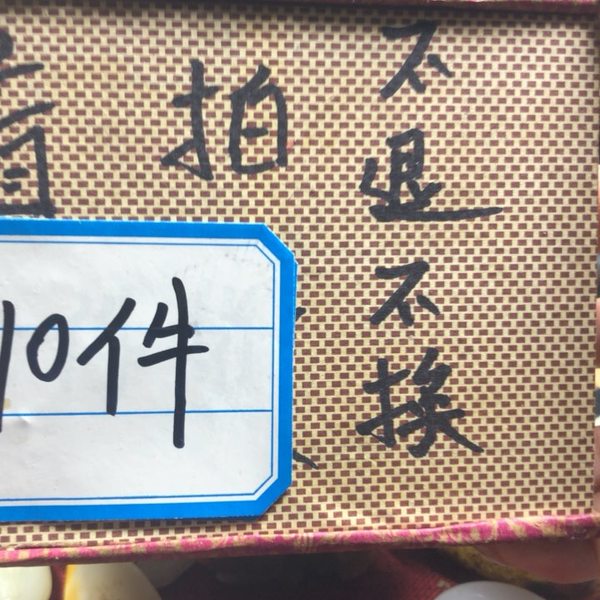 不退不换
拍
10件